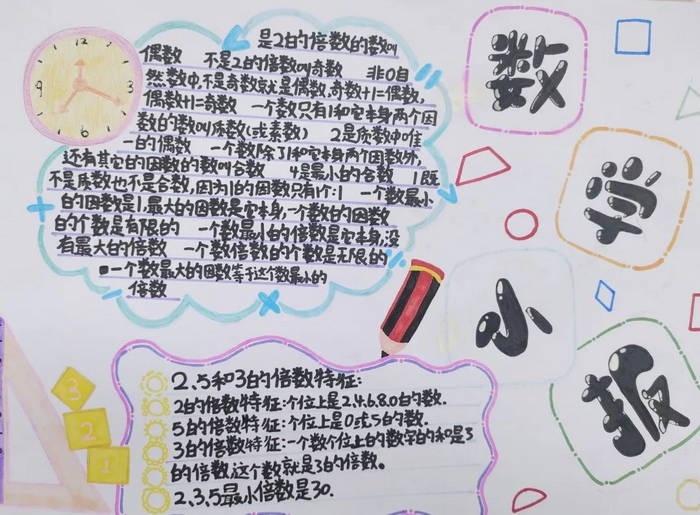 数
学
小
报
12
3
6
9
是2的倍数的数叫
偶数 不是2的倍数叫奇数 非0自
然数中,不是奇数就是偶数,奇数+1=偶数,
偶数+1=奇数 一个数只有1和它本身两个因
数的数叫质数(或素数) 2是质数中唯
一的偶数 一个数除了1和它本身两个因数外,
还有其它的因数的数叫合数 4是最小的合数 1既
不是质数也不是合数,因为1的因数只有1个:1 一个数最小
的因数是1,最大的因数是它本身,一个数的因数
的个数是有限的 一个数最小的倍数是它本身,没
有最大的倍数 一个数倍数的个数是无限的
一个数最大的因数等于这个数最小的
倍数
3
2
1
2.5和3的倍数特征:
2的倍数特征:个位上是2.4.6.8.0的数.
5的倍数特征:个位上是0或5的数.
3的倍数特征:一个数个位上的数字的和是3
的倍数,这个数就是3的倍数。
2.3.5最小倍数是30.